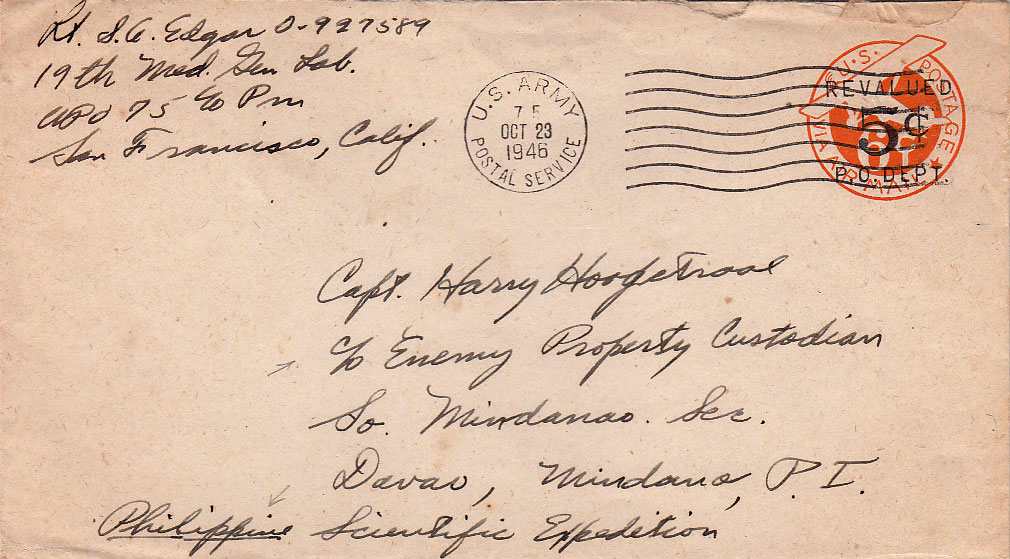 Lt. S.A. Edgar O-927589
19th Med. Gen Lab.
APO 75 % Pm
San Francisco, Calif.
U.S. ARMY
7 P
OCT 23
1946
POSTAL SERVICE
U.S. POSTAGE
REVALUED
5¢
6¢
P.O. DEPT.
VIA AIR MAIL
Capt. Harry Hoogstraal
c/o Enemy Property Custodian
So. Mindanao. Sec.
Davao, Mindanao, P.I.
Philippine Scientific Expedition